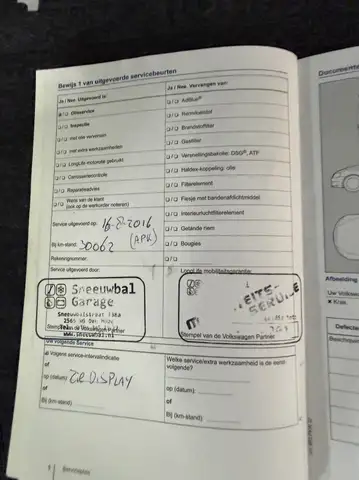 Bewijs 1 van uitgevoerde servicebeurten
Ja / Nee Uitgevoerd is:
Ja / Nee Vervangen van:
Olieservice
AdBlue®
Inspectie
Remvloeistof
met olie verversen
Brandstoffilter
met extra werkzaamheden
Gasfilter
LongLife-motorolie gebruikt
Versnellingsbakolie: DSG®, ATF
Carrosseriecontrole
Haldex-koppeling: olie
Reparatieadvies
Filterelement
Wens van de klant
(ook op de werkorder noteren)
Flesje met bandenafdichtmiddel
Interieurluchtfilterelement
Service uitgevoerd op: 16-8-2016
Getande riem
Bij km-stand: 30062 (APK)
Bougies
Rekeningnummer:
Service uitgevoerd door:
Loopt de mobiliteitsgarantie:
Sneeuwbal
Garage
www.sneeuwbal.nl
SERVICE
Stempel van de Volkswagen Partner
Uw volgende Service
a) Volgens service-intervalindicatie
of
op (datum) ZIE DISPLAY
of
Bij (km-stand)
Welke service/extra werkzaamheid is de eerst
volgende?
op (datum):
of
Bij (km-stand)
Documente
Afbeelding
Uw Volksw
x Kras.
Defecten
Beschrijving